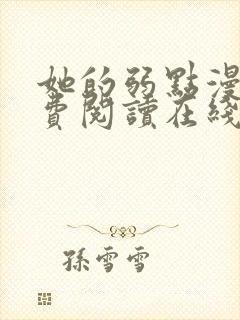 她的弱點漫
費閱讀在綫
孫雪雪